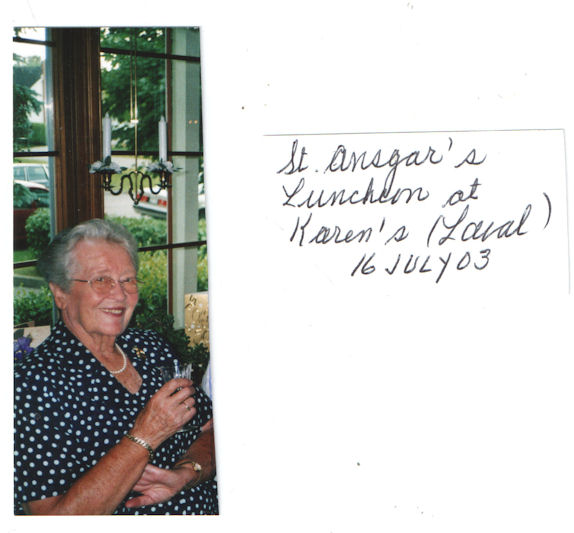 St. Ansgar's
Luncheon at
Karen's (Laval)
16 JULY 03